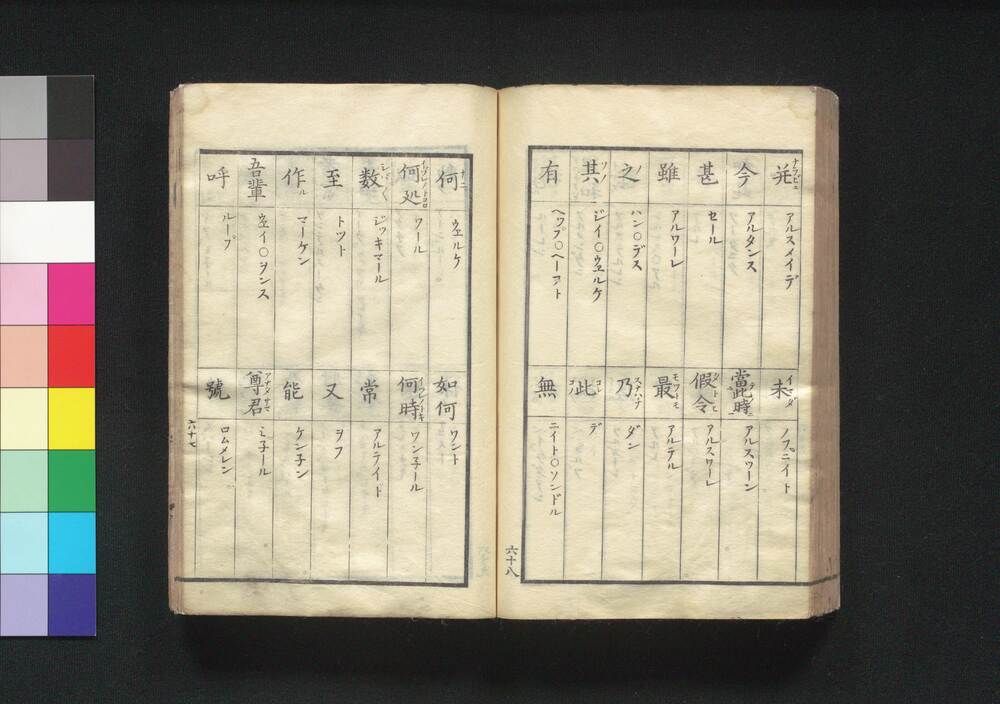 并 ナラビニ
アルスメイデ
今
アルタンス
甚
セール
雖
アルワーレ
之
ハン〇デス
其 ソノ
ジイ〇ウェルケ
有
ヘップ〇ヘーフト
未 イマダ
ノフニイト
當此時
アルスワーン
假令
アルスワーレ
最 モツトモ
アルテル
乃 スナハチ
ダン
此 コレ
デ
無
ニイト〇ソンドル
六十八
何 ナニ
ウェルケ
何処 イヅレノトコロ
ワール
数
ジッキマール
至
トット
作 ル
マーケン
吾輩
ウェイ〇ヲンス
呼
ループ
如何
ワント
何時 イヅレノトキ
ワン子ール
常
アルテイト
又
ヲフ
能
ケン子ン
尊君 アナタサマ
ミ子ール
號
ロムメレン
六十七